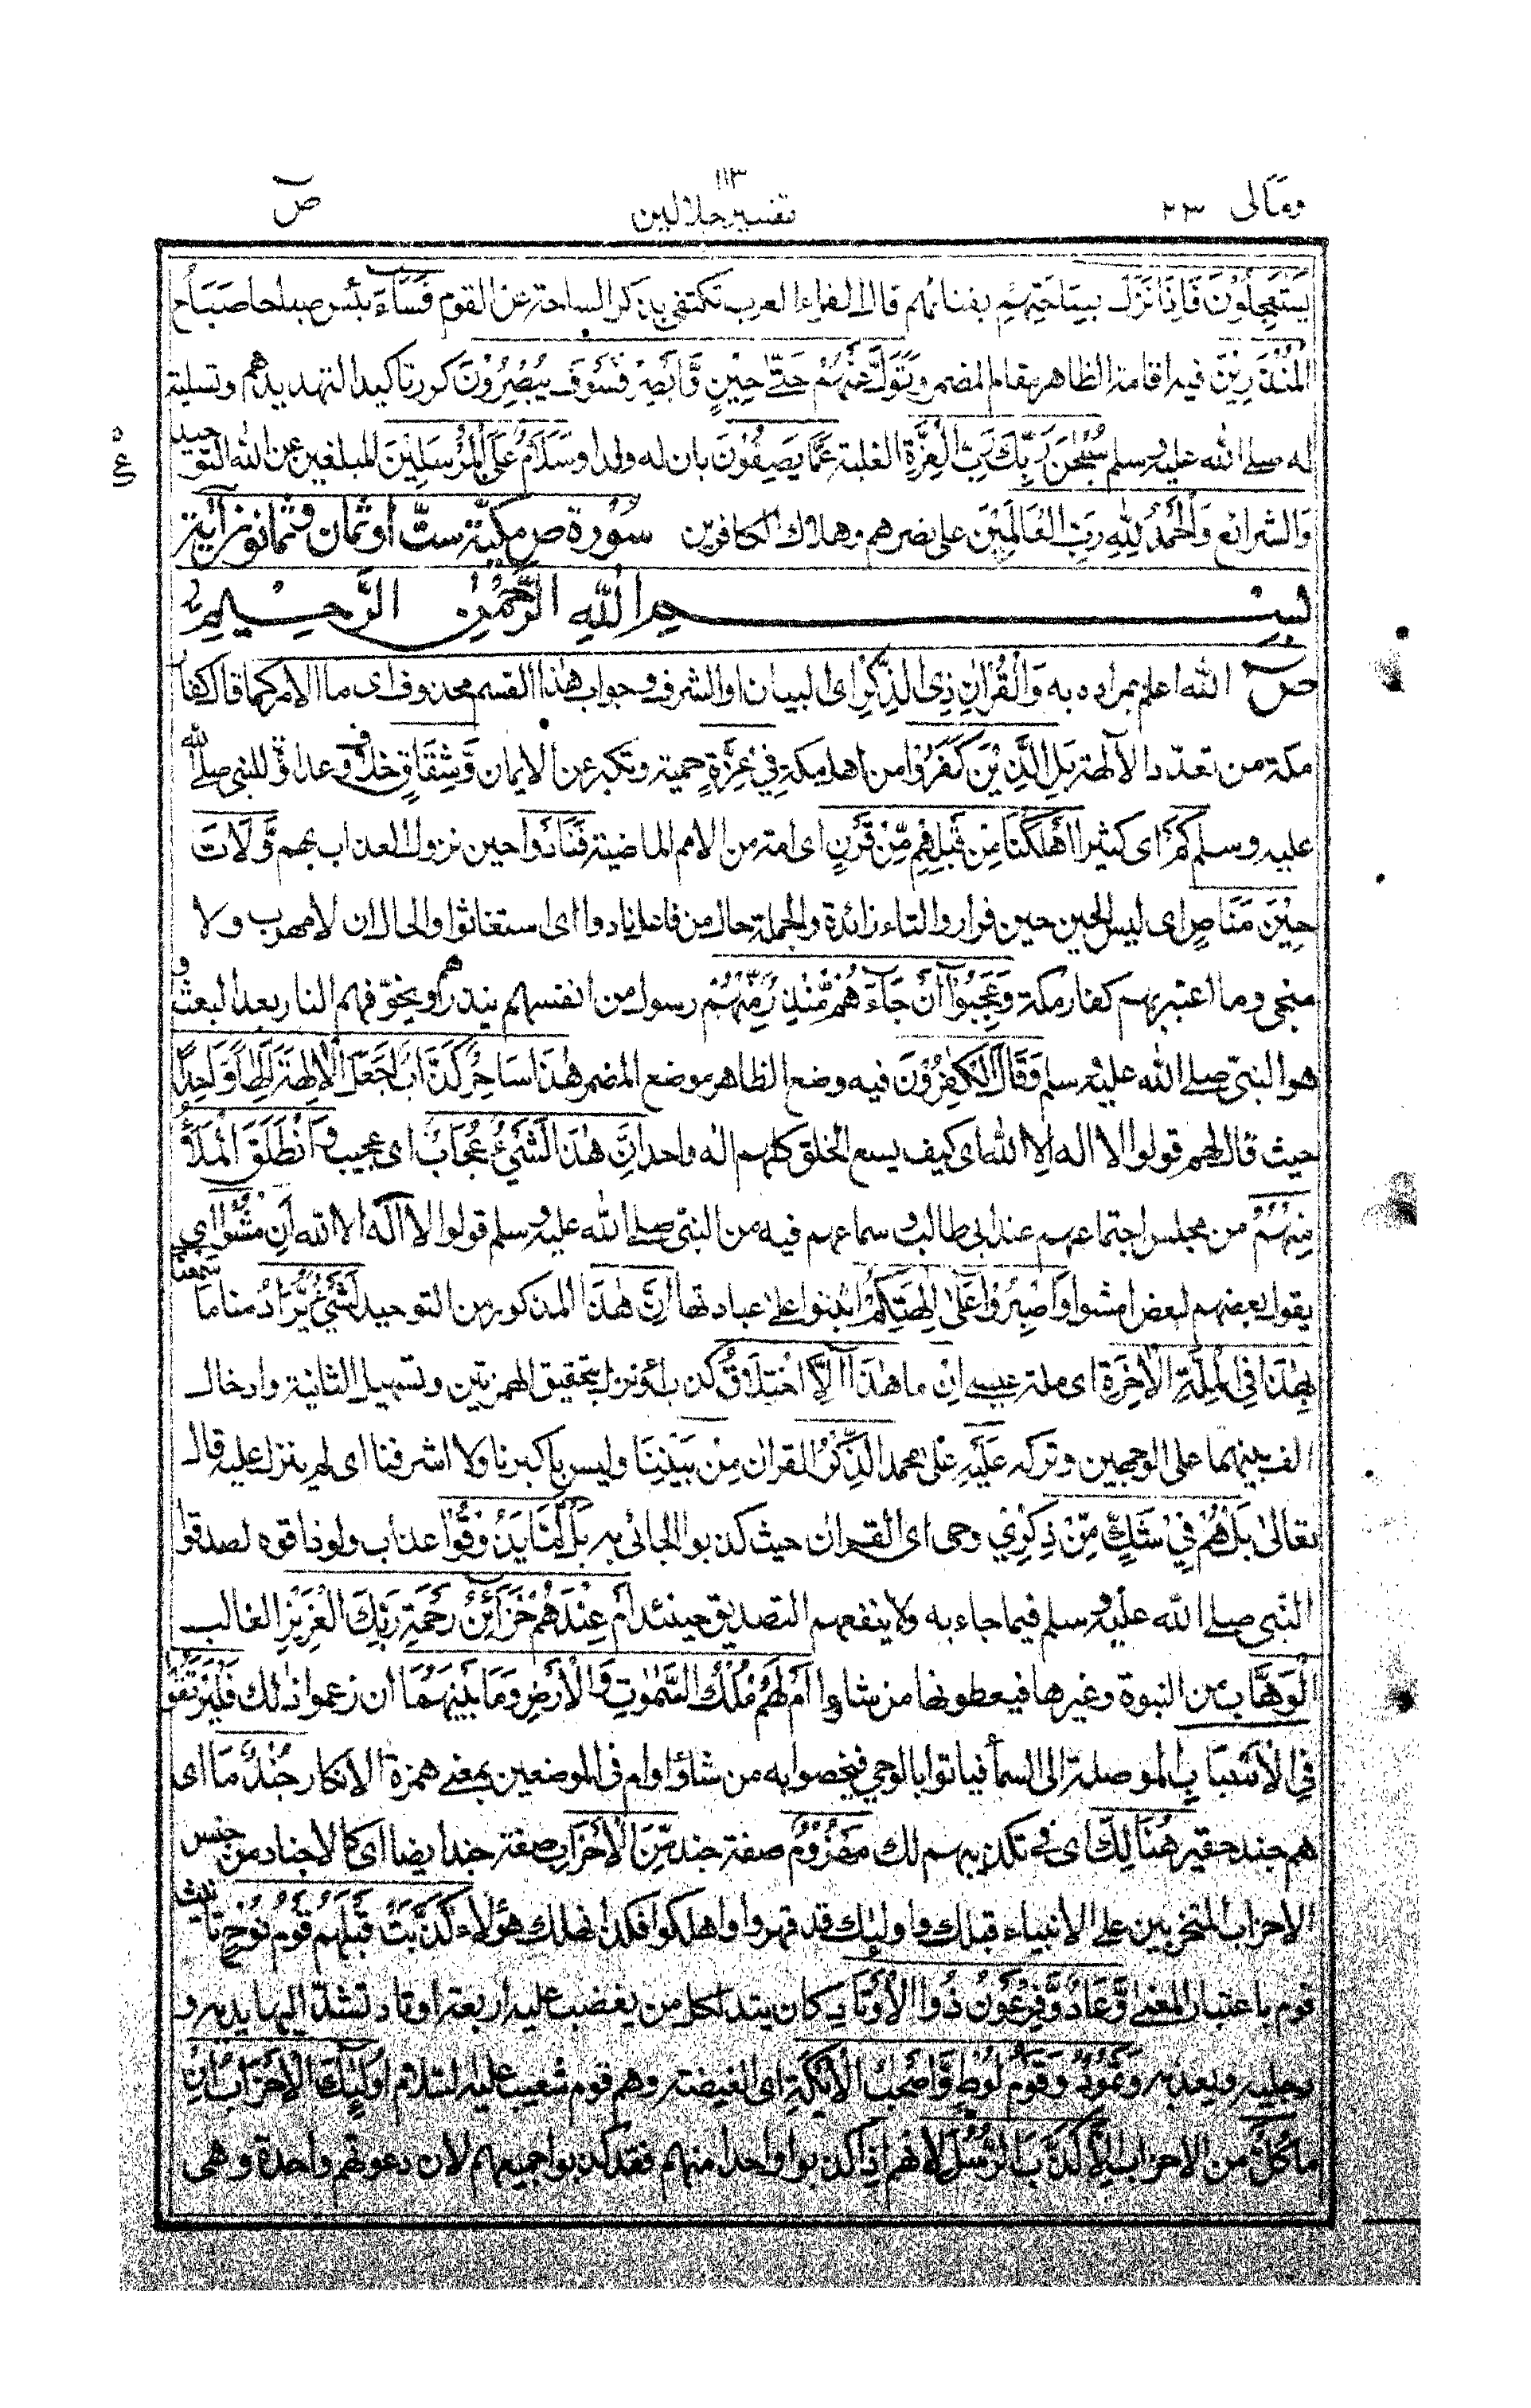 ومالی ٢٣
١١٣
تفسیر جلالین
صٓ
يَسْتَعْجِلُوْنَ فَاِذَا نَزَلَ بِسَاحَتِهِمْ بفنائهم قال الفراء العرب تكتفي بذكر الساحة عن القوم فَسَآءَ بئس صباحا صَبَاحُ
الْمُنْذَرِيْنَ فيه اقامة الظاهر مقام المضمر وَتَوَلَّ عَنْهُمْ حَتّٰى حِيْنٍ وَّاَبْصِرْ فَسَوْفَ يُبْصِرُوْنَ كرر تاكيدا لتهديدهم وتسلية
له صلے الله عليه وسلم سُبْحٰنَ رَبِّكَ رَبِّ الْعِزَّةِ الغلبة عَمَّا يَصِفُوْنَ بان له ولدا وَسَلَامٌ عَلَى الْمُرْسَلِيْنَ المبلغين عن الله التوحيد
وَالشرائع وَالْحَمْدُ لِلّٰهِ رَبِّ الْعٰلَمِيْنَ على نصرهم وهلاك الكافرين سورة ص مكيّة ستّ او ثمان وثمانون اٰية
بِسْمِ اللهِ الرَّحْمٰنِ الرَّحِيْمِ
صٓ الله اعلم بمراده به وَالْقُرْاٰنِ ذِى الذِّكْرِ اى البيان او الشرف وجواب هٰذا القسم محذوف اى ما الامر كما قال كفار
مكة من تعدّد الآلهة بَلِ الَّذِيْنَ كَفَرُوْا من اهل مكة فِيْ عِزَّةٍ حمية وتكبر عن الايمان وَّشِقَاقٍ خلاف وعداوة للنبي صلے الله
عليه وسلم كَمْ اى كثيرا اَهْلَكْنَا مِنْ قَبْلِهِمْ مِّنْ قَرْنٍ اى امة من الامم الماضية فَنَادَوْا حين نزول العذاب بهم وَّلَاتَ
حِيْنَ مَنَاصٍ اى ليس الحين حين فرار والتاء زائدة والجملة حال من فاعل نادوا اى استغاثوا والحال ان لا مهرب ولا
منجى وما اعتبر بهم كفار مكة وَعَجِبُوْٓا اَنْ جَآءَهُمْ مُّنْذِرٌ مِّنْهُمْ رسول من انفسهم ينذرهم ويخوّفهم النار بعد البعث و
هو النبي صلے الله عليه وسلم وَقَالَ الْكٰفِرُوْنَ فيه وضع الظاهر موضع المضمر هٰذَا سَاحِرٌ كَذَّابٌ اَجَعَلَ الْاٰلِهَةَ اِلٰهًا وَّاحِدًا
حيث قال لهم قولوا لا اله الا الله اى كيف يسع الخلق كلهم اله واحد اِنَّ هٰذَا لَشَيْءٌ عُجَابٌ اى عجيب وَانْطَلَقَ الْمَلَاُ
مِنْهُمْ من مجلس اجتماعهم عند ابي طالب وسماعهم فيه من النبي صلے الله عليه وسلم قولوا لا اله الا الله اَنِ امْشُوْا اى
يقول بعضهم لبعض امشوا وَاصْبِرُوْا عَلٰى اٰلِهَتِكُمْ اثبتوا على عبادتها اِنَّ هٰذَا المذكور من التوحيد لَشَيْءٌ يُّرَادُ منا مَا سَمِعْنَا
بِهٰذَا فِى الْمِلَّةِ الْاٰخِرَةِ اى ملة عيسى اِنْ ما هٰذَآ اِلَّا اخْتِلَاقٌ كذب ءَاُنْزِلَ بتحقيق الهمزتين وتسهيل الثانية وادخال
الف بينهما على الوجهين وتركه عَلَيْهِ على محمد الذِّكْرُ القران مِنْ بَيْنِنَا وليس باكبرنا ولا اشرفنا اى لم ينزل عليه قال
تعالى بَلْ هُمْ فِيْ شَكٍّ مِّنْ ذِكْرِيْ وحى اى القران حيث كذبوا الجائى به بَلْ لَّمَّا يَذُوْقُوْا عذاب ولو ذاقوه لصدقوا
النبي صلے الله عليه وسلم فيما جاء به ولا ينفعهم التصديق حينئذ اَمْ عِنْدَهُمْ خَزَآئِنُ رَحْمَةِ رَبِّكَ الْعَزِيْزِ الغالب
الْوَهَّابِ من النبوة وغيرها فيعطونها من شاءوا اَمْ لَهُمْ مُّلْكُ السَّمٰوٰتِ وَالْاَرْضِ وَمَا بَيْنَهُمَا ان زعموا ذٰلك فَلْيَرْتَقُوْا
فِى الْاَسْبَابِ الموصلة الى السماء فياتوا بالوحي فيخصوا به من شاؤا وام فى الموضعين بمعنى همزة الانكار جُنْدٌ مَّا اى
هم جند حقير هُنَالِكَ اى فى تكذيبهم لك مَهْزُوْمٌ صفة جند مِّنَ الْاَحْزَابِ صفة جند ايضا اى كالاجناد من جنس
الاحزاب المتحزبين على الانبياء قبلك واولٰئك قد قهروا واهلكوا فكذا نهلك هؤلاء كَذَّبَتْ قَبْلَهُمْ قَوْمُ نُوْحٍ تانيث
قوم باعتبار المعنى وَّعَادٌ وَّفِرْعَوْنُ ذُوا الْاَوْتَادِ كان يتد لكل من يغضب عليه اربعة اوتاد تشدّ اليها يديه و
رجليه ويعذبه وَثَمُوْدُ وَقَوْمُ لُوْطٍ وَّاَصْحٰبُ الْاَيْكَةِ اى الغيضة وهم قوم شعيب عليه السلام اُولٰٓئِكَ الْاَحْزَابُ اِنْ
ما كُلٌّ من الاحزاب اِلَّا كَذَّبَ الرُّسُلَ لانهم اذا كذبوا واحدا منهم فقد كذبوا جميعهم لان دعوتهم واحدة وهى